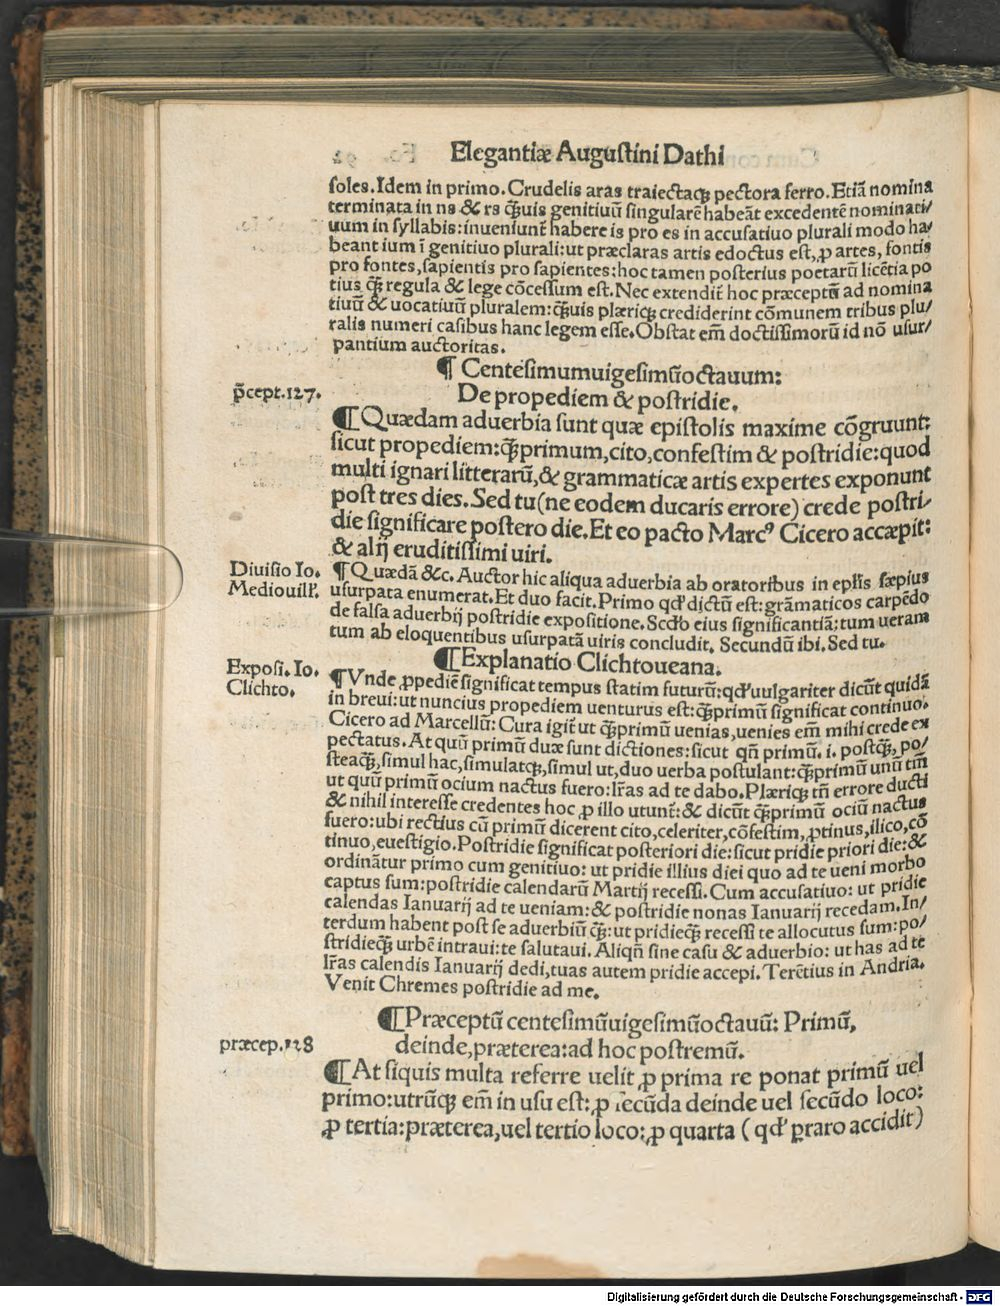 Elegantiæ Augustini Dathi
soles. Idem in primo. Crudelis aras traiectaqꝫ pectora ferro. Etiã nomina
terminata in ns & rs q̃ꝫuis genitiuũ singularẽ habeãt excedentẽ nominati/
uum in syllabis: inueniunt̃ habere is pro es in accusatiuo plurali modo ha/
beant ium ĩ genitiuo plurali: ut præclaras artis edoctus est, ꝓ artes, fontis
pro fontes, sapientis pro sapientes: hoc tamen posterius poetarũ licẽtia po
tius q̃ꝫ regula & lege cõcessum est. Nec extendit̃ hoc præceptũ ad nomina
tiuũ & uocatiuũ pluralem: q̃ꝫuis plæriqꝫ crediderint cõmunem tribus plu/
ralis numeri casibus hanc legem esse. Obstat em̃ doctissimorũ id nõ usur/
pantium auctoritas.
¶ Centesimumuigesimũoctauum:
p̃cept. 127.
De propediem & postridie.
¶ Quædam aduerbia sunt quæ epistolis maxime cõgruunt:
sicut propediem: q̃ꝫprimum, cito, confestim & postridie: quod
multi ignari litterarũ, & grammaticæ artis expertes exponunt
post tres dies. Sed tu (ne eodem ducaris errore) crede postri/
die significare postero die. Et eo pacto Marcꝰ Cicero accæpit:
& alij eruditissimi uiri.
Diuisio Io.
Mediouill'.
¶ Quædã &c. Auctor hic aliqua aduerbia ab oratoribus in epl̃is sæpius
usurpata enumerat. Et duo facit. Primo qd' dictũ est: grãmaticos carpẽdo
de falsa aduerbij postridie expositione. Scd̃o eius significantiã: tum ueram
tum ab eloquentibus usurpatã uiris concludit. Secundũ ibi. Sed tu.
¶ Explanatio Clichtoueana.
Exposi. Io.
Clichto.
¶ Vnde ꝓpediẽ significat tempus statim futurũ: qd' uulgariter dicũt quidã
in breui: ut nuncius propediem uenturus est: q̃ꝫprimũ significat continuo.
Cicero ad Marcellũ: Cura igit̃ ut q̃ꝫprimũ uenias, uenies em̃ mihi crede ex
pectatus. At quũ primũ duæ sunt dictiones: sicut qñ primũ. i. postq̃ꝫ, po/
steaq̃ꝫ, simul hac, simulatqꝫ, simul ut, duo uerba postulant: q̃ꝫprimũ unũ tm̃
ut quũ primũ ocium nactus fuero: lr̃as ad te dabo. Plæriqꝫ tñ errore ducti
& nihil interesse credentes hoc ꝓ illo utunt̃: & dicũt q̃ꝫprimũ ociũ nactus
fuero: ubi rectius cũ primũ dicerent cito, celeriter, cõfestim, ꝓtinus, ilico, cõ
tinuo, euestigio. Postridie significat posteriori die: sicut pridie priori die: &
ordinãtur primo cum genitiuo: ut pridie illius diei quo ad te ueni morbo
captus sum: postridie calendarũ Martij recessi. Cum accusatiuo: ut pridie
calendas Ianuarij ad te ueniam: & postridie nonas Ianuarij recedam. In/
terdum habent post se aduerbiũ q̃ꝫ: ut pridieq̃ꝫ recessi te allocutus sum: po/
stridieq̃ꝫ urbẽ intraui: te salutaui. Aliqñ sine casu & aduerbio: ut has ad te
lr̃as calendis Ianuarij dedi, tuas autem pridie accepi. Terẽtius in Andria.
Venit Chremes postridie ad me.
¶ Præceptũ centesimũuigesimũoctauũ: Primũ,
præcep. 128
deinde, præterea: ad hoc postremũ.
¶ At siquis multa referre uelit ꝓ prima re ponat primũ uel
primo: utrũqꝫ em̃ in usu est: ꝓ secũda deinde uel secũdo loco:
ꝓ tertia: præterea, uel tertio loco: ꝓ quarta (qd' ꝑraro accidit)
Digitalisierung gefördert durch die Deutsche Forschungsgemeinschaft - DFG